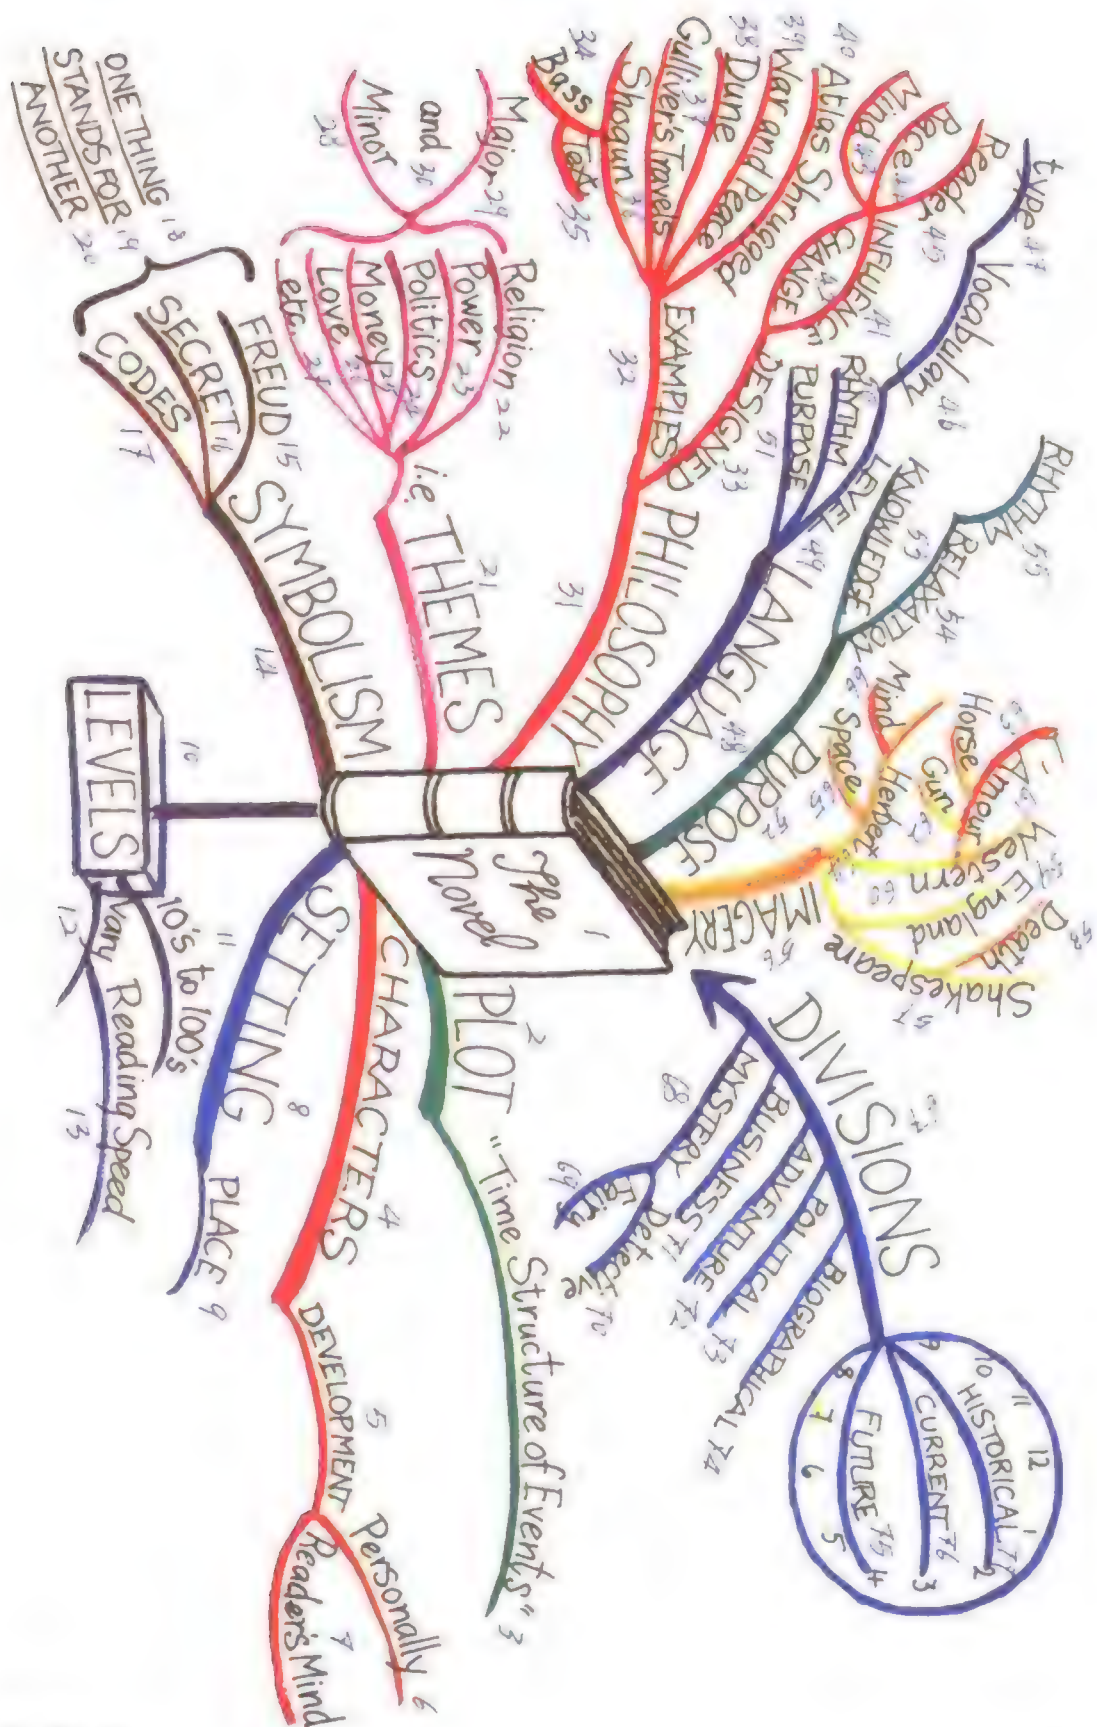 The 1
Novel
PLOT 2
"Time Structure of Events" 3
CHARACTERS 4
DEVELOPMENT 5
Personally 6
Reader's Mind 7
SETTING 8
PLACE 9
LEVELS 10
10's to 100's 11
Vary 12
Reading Speed 13
SYMBOLISM 14
FREUD 15
SECRET 16
CODES 17
ONE THING 18
STANDS FOR 19
ANOTHER 20
i.e. THEMES 21
Religion 22
Power 23
Politics 24
Money 25
Love
etc.
Minor 28
Major 29
and 30
PHILOSOPHY 31
EXAMPLES 32
DESIGNED 33
Bass 34
Text 35
Shogun 36
Gulliver's Travels 37
Dune 38
War and Peace 39
Atlas Shrugged 40
INFLUENCE 41
CHANGE
Mind 43
Race
Reader 45
Vocabulary 46
type 47
LANGUAGE 48
LEVEL 49
RHYTHM
PURPOSE 51
PURPOSE 52
KNOWLEDGE 53
RELAXATION 54
RHYTHM 55
IMAGERY 56
Shakespeare 57
Death 58
England 59
Western 60
Amour 61
Gun 62
Horse 63
Herbert 64
Space 65
Mind 66
DIVISIONS 67
MYSTERY 68
Fairy 69
Detective 70
BUSINESS 71
ADVENTURE 72
POLITICAL 73
BIOGRAPHICAL 74
FUTURE 75
CURRENT 76
HISTORICAL 77
12
11
10
9
8
7
6
5
4
3
2
1